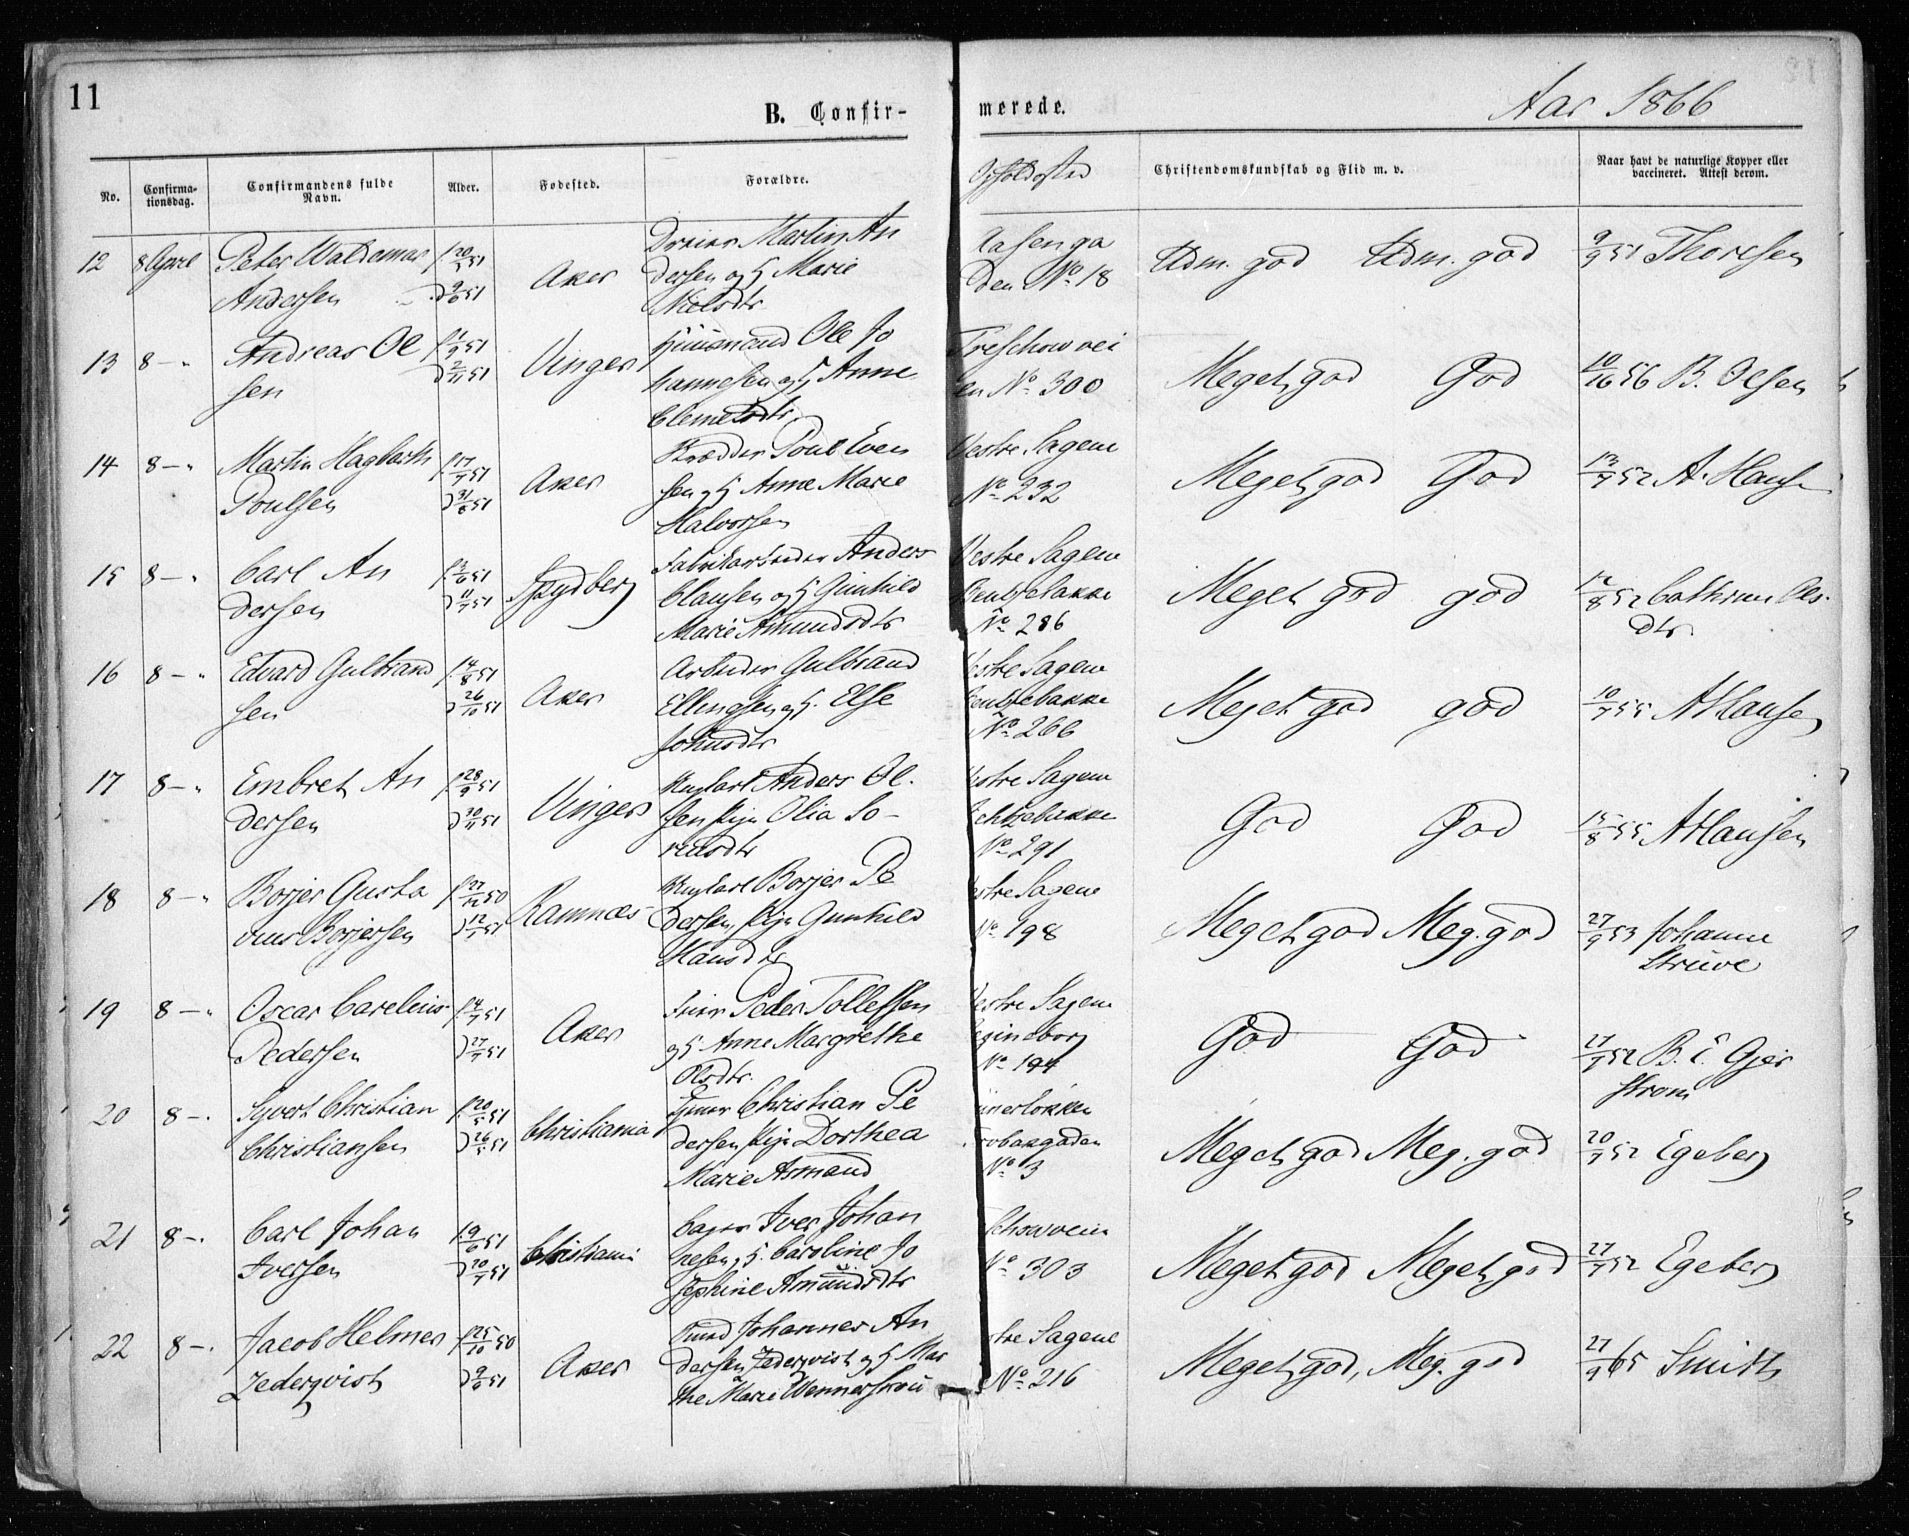 11
B. Confir-
merede.
Aar 1866
No.
Confirma-
tionsdag.
Confirmandens fulde
Navn.
Alder.
Fødested.
Forældre.
Opholdssted
Christendomskundskab og Flid m. v.
Naar havt de naturlige Kopper eller
vaccineret. Attest derom.
12 8 April Peter Waldemar
Andersen
f. 20/5 51
D 9/6 51
Aker
Dreier Martin An
dersen og H Marie
Nielsdtr
den No 18
Udm. god Udm. god
9/9 51 Thoresen
13 8 - "
Andreas Ol
sen
f. 1/9 51
D 2/11 51
Vinger
Huusmand Ole Jo
hannesen og H Anne
Clemetsdtr
Treschowvei
en No. 300
Meget god God
10/16 56 B. Olsen
14 8 - "
Martin Hagbarth
Poulsen
f. 17/7 51
D 31/8 51
Aker
Skrædder Poul Even
sen og H Anne Marie
Halvorsen
Vestre Sagene
No. 232
Meget god God
13/7 52 A. Hansen
15 8 - "
Carl An
dersen
f. 3/6 51
D 11/7 51
Spydberg
Fabrikarbeider Anders
Clausen og H Gunhild
Marie Amundsdtr
Vestre Sagene
No 286
Meget god god
12/8 52 Cathrine Ols-
dtr
16 8 - "
Edvard Gulbrand
sen
f. 14/8 51
D 26/10 51
Aker
Arbeider Gulbrand
Ellingsen og H. Else
Johnsdtr
Vestre Sagene
No 266
Meget god god
10/7 55 A Hansen
17 8 - "
Embret An
dersen
f. 28/9 51
D 30/11 51
Vinger
Ungkarl Anders Ol.
sen Pige Olia So-
rensdtr
Vestre Sagene
No 291
God God
15/8 55 A Hansen
18 8 - "
Borjer Gusta
vus Borjersen
f. 27/12 50
D 12/1 51
Ramnæs
Ungkarl Borjer Pe
dersen, Pige Gunhild
Hansdtr
Vestre Sagene
No. 198
Meget god Meg. god
27/9 53 Johanne
Struve
19 8 - "
Oscar Carelius
Pedersen
f. 4/7 51
D 27/7 51
Aker
Peder Tollefsen
og H Anne Margrethe
Olsdtr.
Vestre Sagene
No. 194
God God
27/7 52 B. C. Gjer
strom
20 8 - "
Syvert Christian
Christiansen
f. 20/5 51
D 26/5 51
Christiania
Christian Pe
dersen, Pige Dorthea
Marie Asmand
No 3
Meget god Meg. god
20/7 52 Egeberg
21 8 - "
Carl Johan
Iversen
f. 9/6 51
D 20/7 51
Christiani
Bager Iver Johan
nesen og H. Caroline Jo
sephine Amundsdtr
schowveien
No 303
Meget god Meget god
27/7 52 Egeberg
22 8 - "
Jacob Helmer
Zederqvist
f. 25/10 50
D 9/6 51
Aker
Smed Johannes An
dersen Zederqvist og H Mar
the Marie Wennerstrøm
Vestre Sagene
No. 216
Meget god, Meg. god
27/9 65 Smith